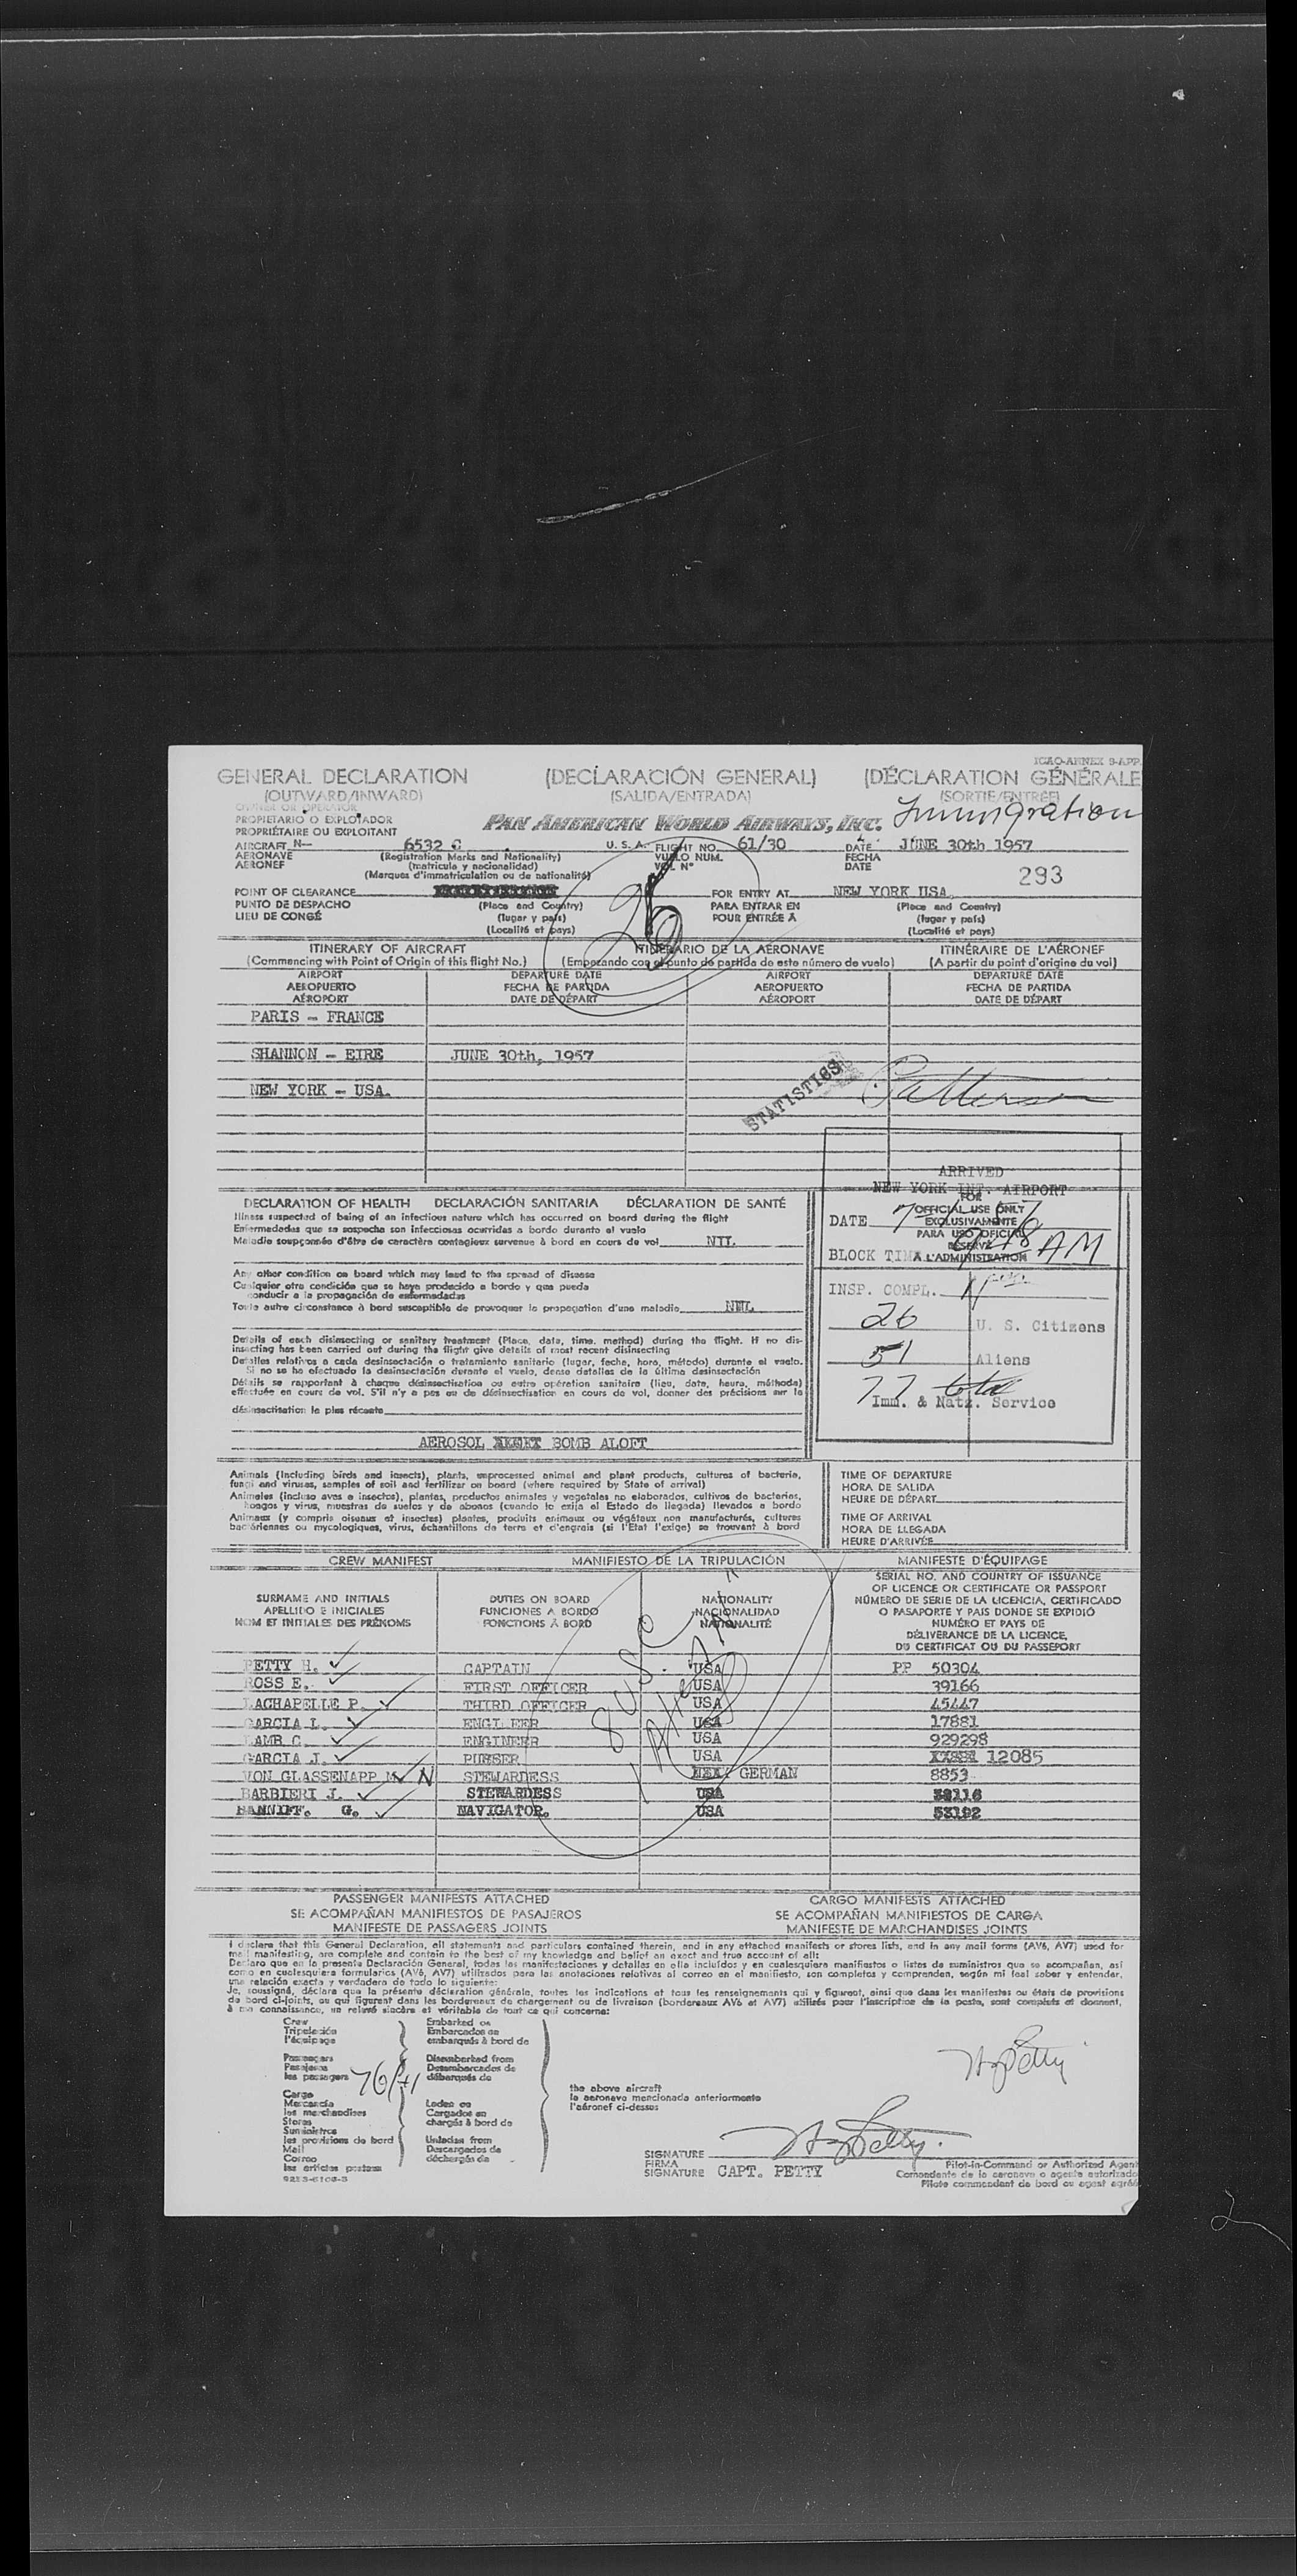 ICAO-ANNEX 9-APP.
GENERAL DECLARATION (DECLARACIÓN GENERAL) (DÉCLARATION GÉNÉRALE
(OUTWARD/INWARD) (SALIDA/ENTRADA) (SORTIE/ENTRÉE)
OWNER OR OPERATOR
PROPIETARIO O EXPLOTADOR
PROPRIÉTAIRE OU EXPLOITANT
PAN AMERICAN WORLD AIRWAYS, INC. Immigration
AIRCRAFT N— 6532 C U. S. A. FLIGHT NO. 61/30 DATE JUNE 30th 1957
AERONAVE (Registration Marks and Nationality) VUELO NUM. FECHA
AERONEF (matrícula y nacionalidad) VOL N° DATE
(Marques d'immatriculation ou de nationalité)
293
POINT OF CLEARANCE FOR ENTRY AT NEW YORK USA.
PUNTO DE DESPACHO (Place and Country) PARA ENTRAR EN (Place and Country)
LIEU DE CONGÉ (lugar y país) POUR ENTRÉE À (lugar y país)
(Localité et pays) (Localité et pays)
26
ITINERARY OF AIRCRAFT ITINERARIO DE LA AERONAVE ITINÉRAIRE DE L'AÉRONEF
(Commencing with Point of Origin of this flight No.) (Empezando con el punto de partida de este número de vuelo) (A partir du point d'origine du vol)
AIRPORT DEPARTURE DATE AIRPORT DEPARTURE DATE
AEROPUERTO FECHA DE PARTIDA AEROPUERTO FECHA DE PARTIDA
AÉROPORT DATE DE DÉPART AÉROPORT DATE DE DÉPART
PARIS - FRANCE
SHANNON - EIRE JUNE 30th, 1957
NEW YORK - USA.
STATISTICS
Patterson
ARRIVED
NEW YORK INT. AIRPORT
FOR
OFFICIAL USE ONLY
EXCLUSIVAMENTE
PARA USO OFICIAL
RÉSERVÉ
A L'ADMINISTRATION
DATE
BLOCK TIME AM
INSP. COMPL.
26 U. S. Citizens
51 Aliens
77 total
Imm. & Natz. Service
DECLARATION OF HEALTH DECLARACIÓN SANITARIA DÉCLARATION DE SANTÉ
Illness suspected of being of an infectious nature which has occurred on board during the flight
Enfermedades que se sospecha son infecciosas ocurridas a bordo durante el vuelo
Maladie soupçonnée d'être de caractère contagieux survenue à bord en cours de vol NIL
Any other condition on board which may lead to the spread of disease
Cualquier otra condición que se haya producido a bordo y que pueda
conducir a la propagación de enfermedades
Toute autre circonstance à bord susceptible de provoquer la propagation d'une maladie NIL
Details of each disinsecting or sanitary treatment (Place, date, time, method) during the flight. If no dis-
insecting has been carried out during the flight give details of most recent disinsecting
Detalles relativos a cada desinsectación o tratamiento sanitario (lugar, fecha, hora, método) durante el vuelo.
Si no se ha efectuado la desinsectación durante el vuelo, dense detalles de la última desinsectación
Détails se rapportant à chaque désinsectisation ou autre opération sanitaire (lieu, date, heure, méthode)
effectuée en cours de vol. S'il n'y a pas eu de désinsectisation en cours de vol, donner des précisions sur la
désinsectisation la plus récente
AEROSOL BOMB ALOFT
Animals (including birds and insects), plants, unprocessed animal and plant products, cultures of bacteria,
fungi and viruses, samples of soil and fertilizer on board (where required by State of arrival)
Animales (incluso aves e insectos), plantas, productos animales y vegetales no elaborados, cultivos de bacterias,
hongos y virus, muestras de suelos y de abonos (cuando lo exija el Estado de llegada) llevados a bordo
Animaux (y compris oiseaux et insectes) plantes, produits animaux ou végétaux non manufacturés, cultures
bactériennes ou mycologiques, virus, échantillons de terre et d'engrais (si l'Etat l'exige) se trouvant à bord
TIME OF DEPARTURE
HORA DE SALIDA
HEURE DE DÉPART
TIME OF ARRIVAL
HORA DE LLEGADA
HEURE D'ARRIVÉE
CREW MANIFEST MANIFIESTO DE LA TRIPULACIÓN MANIFESTE D'ÉQUIPAGE
SURNAME AND INITIALS
APELLIDO E INICIALES
NOM ET INITIALES DES PRÉNOMS
DUTIES ON BOARD
FUNCIONES A BORDO
FONCTIONS À BORD
NATIONALITY
NACIONALIDAD
NATIONALITÉ
SERIAL NO. AND COUNTRY OF ISSUANCE
OF LICENCE OR CERTIFICATE OR PASSPORT
NÚMERO DE SERIE DE LA LICENCIA, CERTIFICADO
O PASAPORTE Y PAIS DONDE SE EXPIDIÓ
NUMÉRO ET PAYS DE
DÉLIVERANCE DE LA LICENCE,
DU CERTIFICAT OU DU PASSEPORT
8 USC
1 Alien
PETTY H. CAPTAIN USA PP 50304
ROSS E. FIRST OFFICER USA 39166
LACHAPELLE P. THIRD OFFICER USA 45447
GARCIA L. ENGINEER USA 17881
LAMB C. ENGINEER USA 929298
GARCIA J. PURSER USA 12085
VON GLASSENAPP M. N STEWARDESS GERMAN 8853
BARBIERI J. STEWARDESS USA
BANNIFF. G. NAVIGATOR. USA 53192
PASSENGER MANIFESTS ATTACHED CARGO MANIFESTS ATTACHED
SE ACOMPAÑAN MANIFIESTOS DE PASAJEROS SE ACOMPAÑAN MANIFIESTOS DE CARGA
MANIFESTE DE PASSAGERS JOINTS MANIFESTE DE MARCHANDISES JOINTS
I declare that this General Declaration, all statements and particulars contained therein, and in any attached manifests or stores lists, and in any mail forms (AV6, AV7) used for
mail manifesting, are complete and contain to the best of my knowledge and belief an exact and true account of all:
Declaro que en la presente Declaración General, todas las manifestaciones y detalles en ella incluidos y en cualesquiera manifiestos o listas de suministros que se acompañan, así
como en cualesquiera formularios (AV6, AV7) utilizados para las anotaciones relativas al correo en el manifiesto, son completos y comprenden, según mi leal saber y entender,
una relación exacta y verdadera de todo lo siguiente:
Je, soussigné, déclare que la présente déclaration générale, toutes les indications et tous les renseignements qui y figurent, ainsi que dans les manifestes ou états de provisions
de bord ci-joints, ou qui figurent dans les bordereaux de chargement ou de livraison (bordereaux AV6 et AV7) utilisés pour l'inscription de la poste, sont complets et donnent,
à ma connaissance, un relevé sincère et véritable de tout ce qui concerne:
Crew Embarked on
Tripulación Embarcados en
l'équipage embarqués à bord de
Passengers Disembarked from
Pasajeros Desembarcados de
les passagers 76/+1 débarqués de
Cargo
Mercancía Laden on
les marchandises Cargados en
Stores chargés à bord de
Suministros
les provisions de bord Unladen from
Mail Descargados de
Correo déchargés de
les articles postaux
the above aircraft
la aeronave mencionada anteriormente
l'aéronef ci-dessus
H Petty
H Petty.
SIGNATURE
FIRMA
SIGNATURE CAPT. PETTY
Pilot-in-Command or Authorized Agent
Comandante de la aeronave o agente autorizado
Pilote commandant de bord ou agent agréé
2